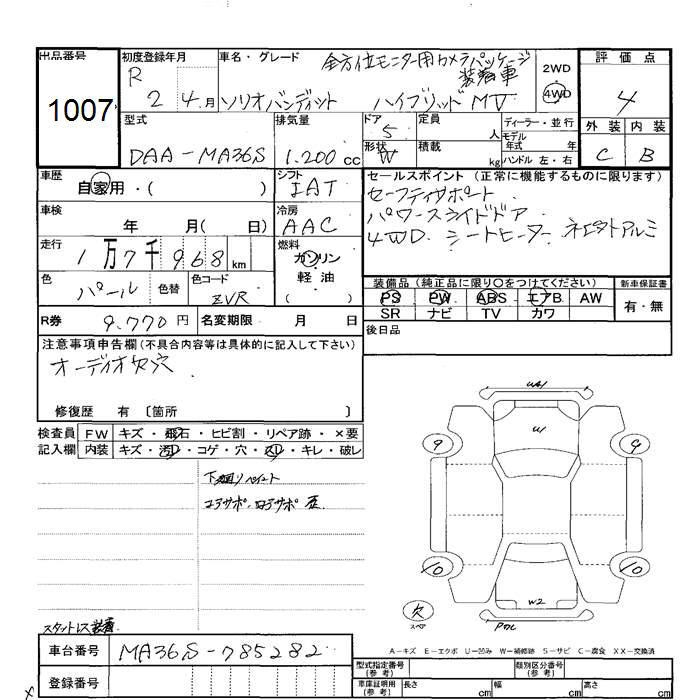 出品番号
1007
初度登録年月
R 2 4.月
車名・グレード
全方位モニター用カメラパッケージ
装着車
ソリオバンディット ハイブリッド MV
2WD
4WD
評価点
4
外装 内装
C B
型式
DAA-MA36S
排気量
1.200 cc
ドア
5
形状
W
定員
人
積載
kg
ディーラー・並行
モデル
年式 年
ハンドル 左・右
車歴
自家用・( )
シフト
IAT
車検
年 月( 日)
冷房
AAC
走行
1万7千968 km
燃料
ガソリン
軽油
( )
色
パール
色替
色コード
ZVR
R券
9.770 円
名変期限 月 日
セールスポイント (正常に機能するものに限ります)
セーフティサポート
パワースライドドア
4WD. シートヒーター
装備品 (純正品に限り〇をつけてください)
PS PW ABS エアB AW
SR ナビ TV カワ
新車保証書
有・無
後日品
注意事項申告欄(不具合内容等は具体的に記入して下さい)
オーディオ欠穴
修復歴 有 〔箇所 〕
検査員
記入欄
FW キズ・飛石・ヒビ割・リペア跡・×要
内装 キズ・汚レ・コゲ・穴・スレ・キレ・破レ
下廻りペイント
コアサポ・ロアサポ 歪
UA1
U1
9 9
10 10
W2
欠
スペア
スタットレス装着
A-キズ E-エクボ U-凹み W-補修跡 S-サビ C-腐食 XX-交換済
車台番号
MA36S-785282
登録番号
型式指定番号
(参考)
類別区分番号
(参考)
車庫証明用
(参考)
長さ cm
幅 cm
高さ cm